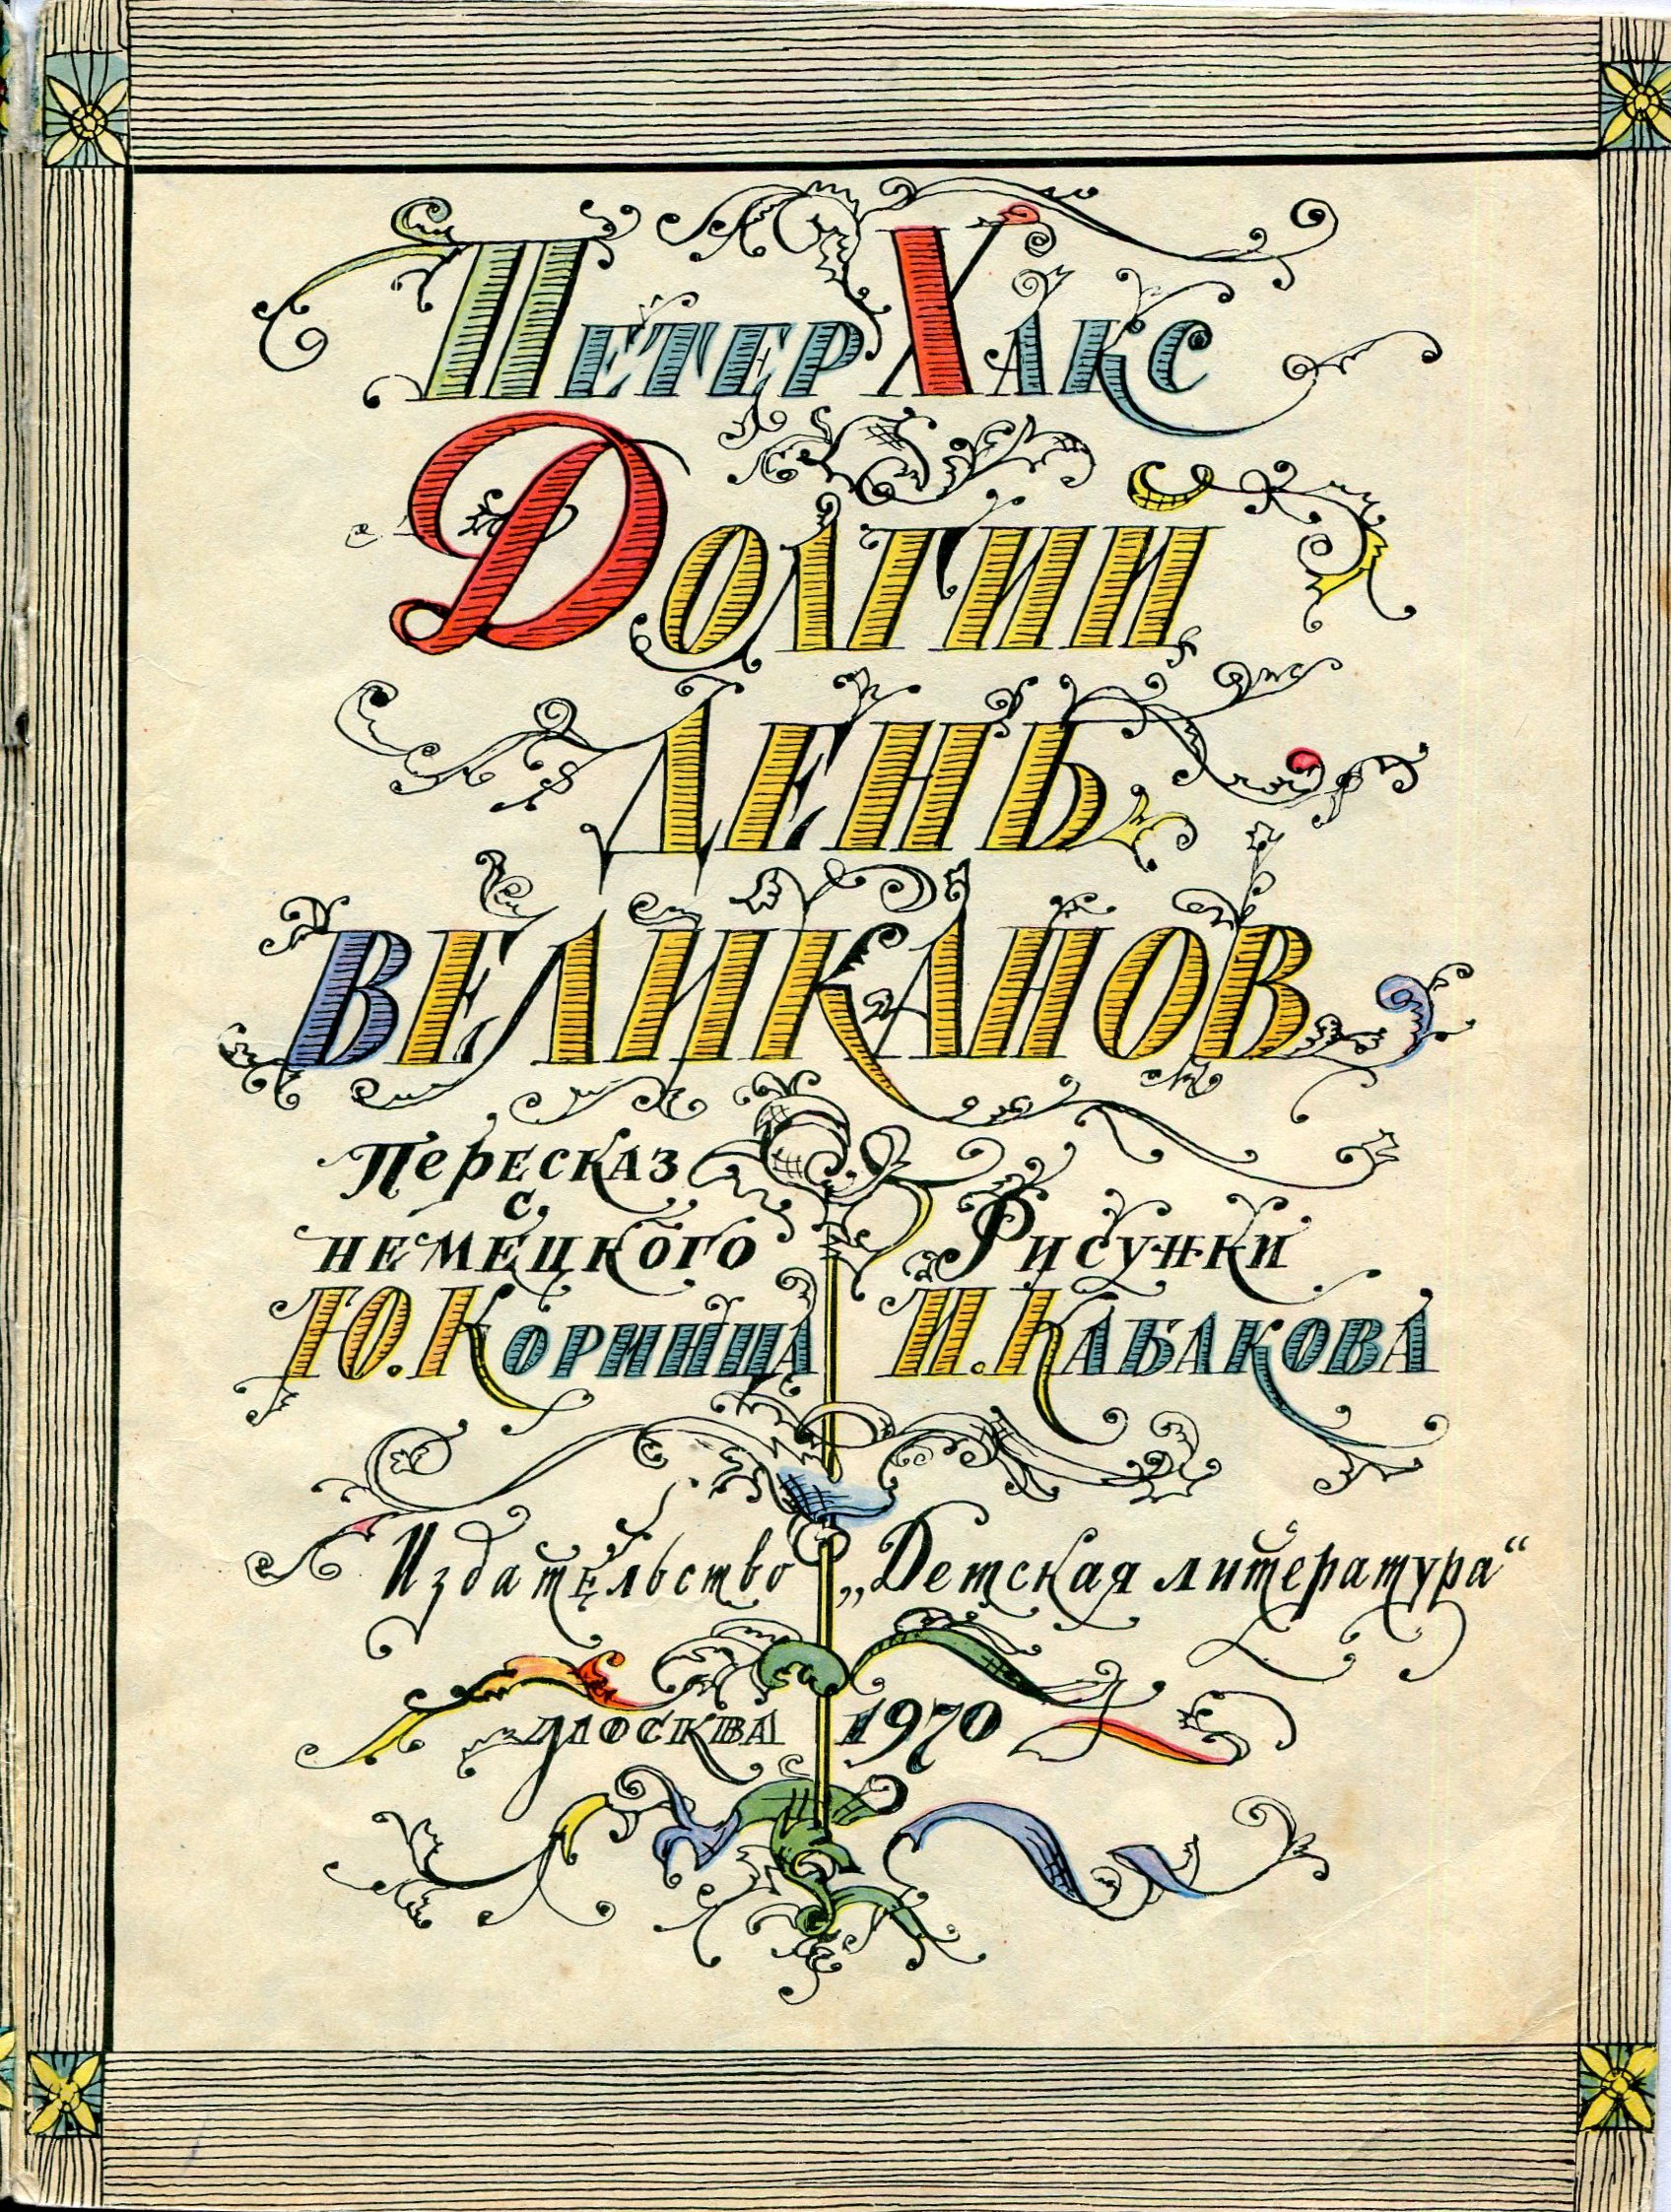 Петер Хакс
Долгий
день
великанов
Пересказ
с
немецкого
Ю. Коринца
Рисунки
И. Кабакова
Издательство „Детская литература“
Москва 1970